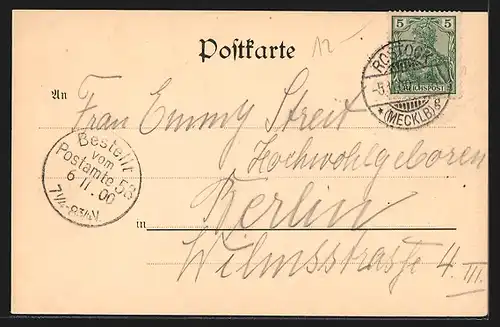 12 –
5 5
REICHSPOST
ROSTOCK
(MECKLB)
Postkarte
An
Frau Emmy Streit
Hochwohlgeboren
Bestellt
vom
Postamte 53
6 11. 00
7 1/4-8 3/4 N
in Berlin
Wilmsstrasse 4 III.